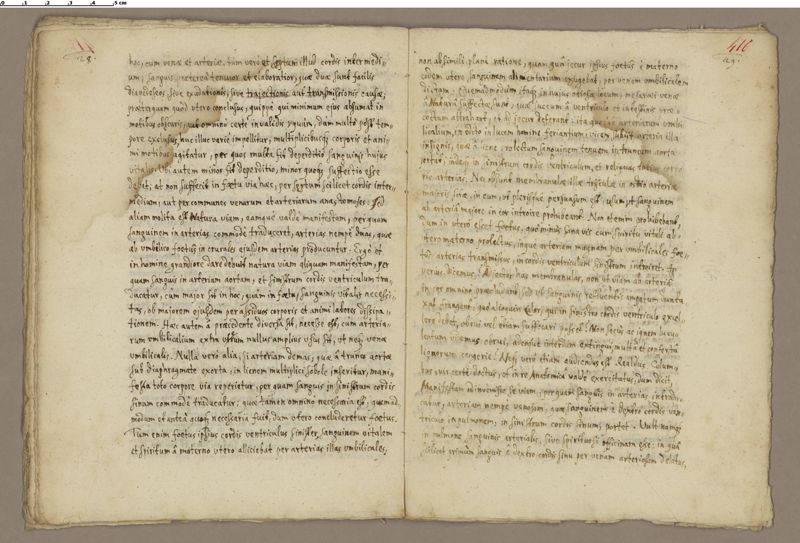 0 1 2 3 4 5 cm
28.
hoc, cum venæ et arteriæ, tum verò et septum illud cordis inter medi-
um; sanguis præterea tenuior et elaboratior, quæ duæ sunt facilis
diapedeseos, sive exudationis, sive trajectionis aut transmissionis causæ,
præterquam quod utero conclusus, quippe qui minimum ejus absumat in
motibus obscuris, aut omninò certè invalidis, quàm, dum multo pòst tem-
pore exclusus, huc illuc variè impellitur, multiplicibusq; corporis et ani-
mi motibus agitatur, per quos multa fit deperditio sanguinis hujus
vitalis. Ubi autem minor fit deperditio, minor quoq; suffectio esse
debet; at non suffecit in fœtu via hæc, per septum scilicet cordis inter-
medium, aut per communes venarum et arteriarum anastomoses: sed
aliam molita est Natura viam, eamque valdè manifestam, per quam
sanguinem in arterias commodè traduceret, arterias nempè duas, quæ
ab umbilico foetus in crurales ejusdem arterias producuntur. Ergò et
in homine grandiore dare debuit natura viam aliquam manifestam, per
quam sanguis in arteriam aortam, et sinistrum cordis ventriculum tra-
ducatur, cum major sit in hoc, quam in fœtu, sanguinis vitalis necessi-
tas, ob majorem ejusdem per assiduos corporis et animi labores dissipa-
tionem. Hæc autem à præcedente diversa sit, necesse est, cum arteria-
rum umbilicalium extra uterum nullus amplius usus sit, ut neq; venæ
umbilicalis. Nulla verò alia, si arteriam demas, quæ à trunco aortæ
sub diaphragmate exorta, in lienem multiplici sobole inseritur, mani-
festa toto corpore via reperitur, per quam sanguis in sinistrum cordis
sinum commodè traducatur, quæ tamen omninò necessaria est, quemad-
modum et anteà quoq; necessaria fuit, dum utero concluderetur foetus.
Tum enim foetus ipsius cordis ventriculus sinister, sanguinem vitalem
et spiritum à materno utero alliciebat per arterias illas umbilicales,
416
29.
non absimili planè ratione, quam quâ jecur ipsius foetus è materno
eidem utero, sanguinem alimentarium exugebat, per venam umbilicalem
dictam. Quemadmodum itaq; in hujus otiosæ locum, mesaraicæ venæ
à Natura suffectæ sunt, quæ succum à ventriculo et intestinis præ-
coctum attrahant, et ad jecur deferant: ita quoq; arteriarum umbi-
licalium, in dicto in lucem homine feriantium vicem subijt arteria illa
insignis, quæ è liene, prolectum sanguinem tenuem in truncum aortæ
inde in sinistrum cordis ventriculum, et reliquas totius corpo-
ris arterias. Nec obsunt membranulæ illæ trisulcæ in ortu arteriæ
majoris sitæ, in eum, uti plerisque persuasum est, usum, ut sanguinem
ab arteriâ majore in cor introire prohibeant. Non etenim prohibebant,
dum in utero esset foetus, quò minus sinus vis cum spiritu vitali ab
utero materno prolectus, inque arteriam magnam per umbilicales foe-
tus arterias transmissus, in cordis ventriculum sinistrum introiret. Ita
verius dicemus, objectas has membranulas, non ut viam ab arteriâ
in cor omninò præcludant, sed ut sanguinis refluentis impetum nonnihil
frangant; quo alioquin calor, qui in sinistro cordis ventriculo excel-
lere debet, obrui vel etiam suffocari posset. Non secus ac ignem luxu-
lentum vidimus obrui, adeoque interdum extingui, multa et confertâ
lignorum congerie. Neq; verò etiam audiendus est Realdus Colum-
bus, vir certè doctus, et in re Anatomica valdè exercitatus, dum dicit,
manifestam adinvenisse se viam, per quam sanguis in arterias introdu-
catur, arteriam nempe venosam, quæ sanguinem è dextro cordis ven-
triculo in pulmonem, in sinistrum cordis sinum, portet. Vult namq;
in pulmone sanguinis arterialis, sive spirituosi officinam esse: in quâ
scilicet primum sanguis è dextro cordis sinu per venam arteriosam delatus,